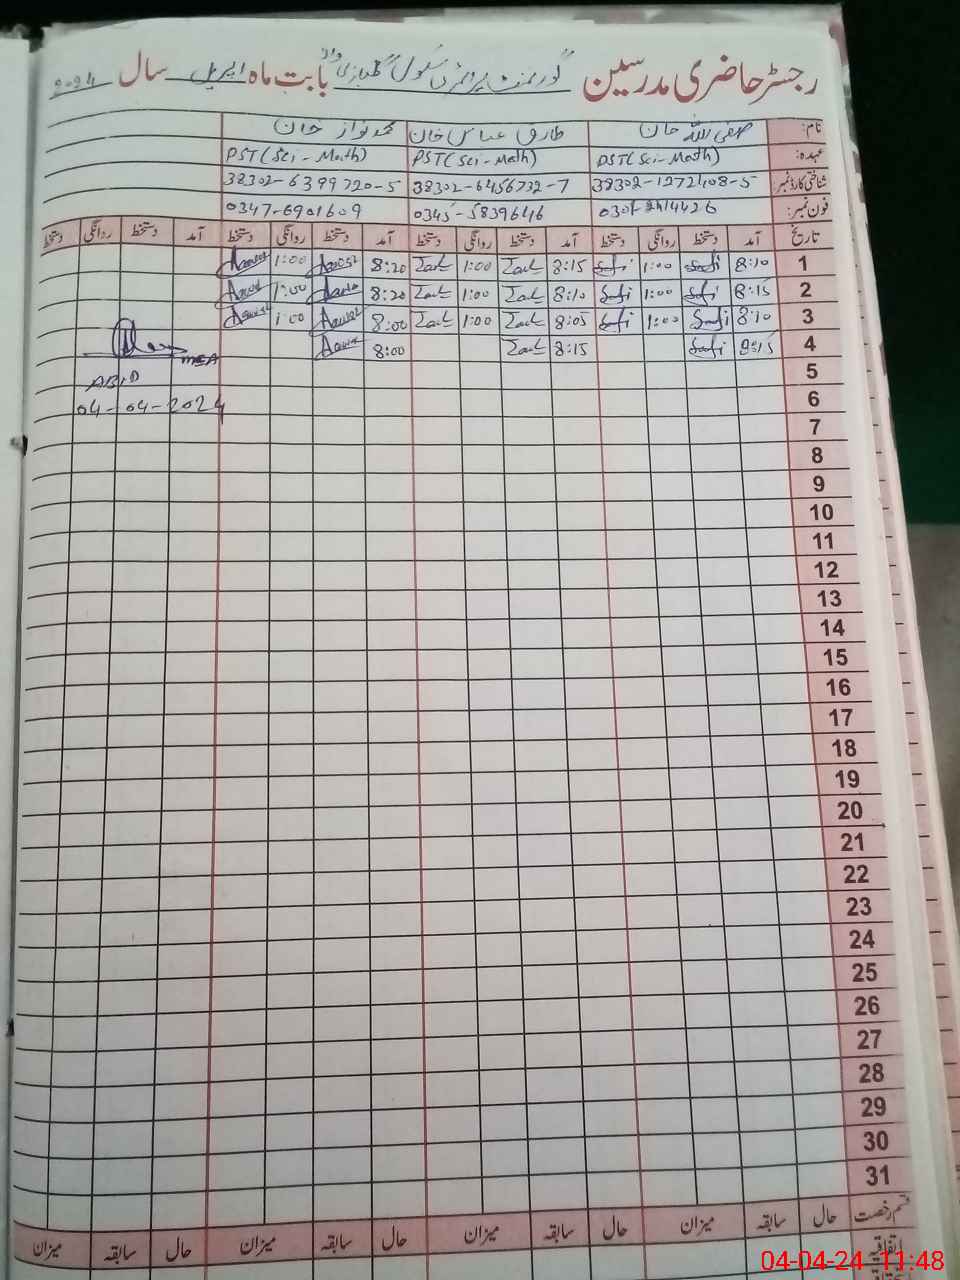 رجسٹر حاضری مدرسین گورنمنٹ پرائمری سکول بابت ماہ اپریل سال 2024
نام: صفی اللہ خان طارق عباس خان محمد نواز خان
عہدہ: PST(Sci-Math) PST(Sci-Math) PST(Sci-Math)
شناختی کارڈ نمبر: 38302-1272408-5 38302-6456732-7 38302-6399720-5
فون نمبر: 0345-5839646 0347-6901609
تاریخ آمد دستخط روانگی دستخط آمد دستخط روانگی دستخط آمد دستخط روانگی دستخط آمد دستخط روانگی دستخط
1 8:10 Safi 1:00 Safi 8:15 1:00 8:20 1:00
2 8:15 Safi 1:00 Safi 8:10 1:00 8:20 1:00
3 8:10 Safi 1:00 Safi 8:05 1:00 8:00 1:00
4 8:15 Safi 8:15 8:00
MEA
5
ABID
6
04-04-2024
7
8
9
10
11
12
13
14
15
16
17
18
19
20
21
22
23
24
25
26
27
28
29
30
31
قسم رخصت حال سابقہ میزان حال سابقہ میزان حال سابقہ میزان حال سابقہ میزان
اتفاقیہ
04-04-24 11:48